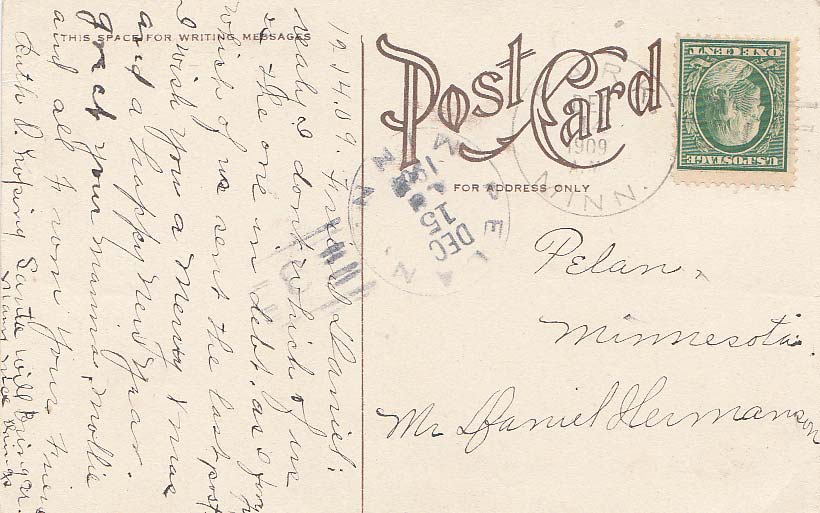 THIS SPACE FOR WRITING MESSAGES
Post Card
FOR ADDRESS ONLY
12.14.09. Friend Daniel:
realy I don't which of us
is the one in debt. as I
which of us sent the last post
I wish you a Merry Xmas
and a happy New Year.
greet your mamma, Mollie
and all from your friend
Ruth P. hoping Santa will bring u.
many nice things
Pelan,
Minnesota.
Mr Daniel Hermanson
1909
MINN.
PELAN
DEC
15
MINN.
U.S. POSTAGE
ONE CENT